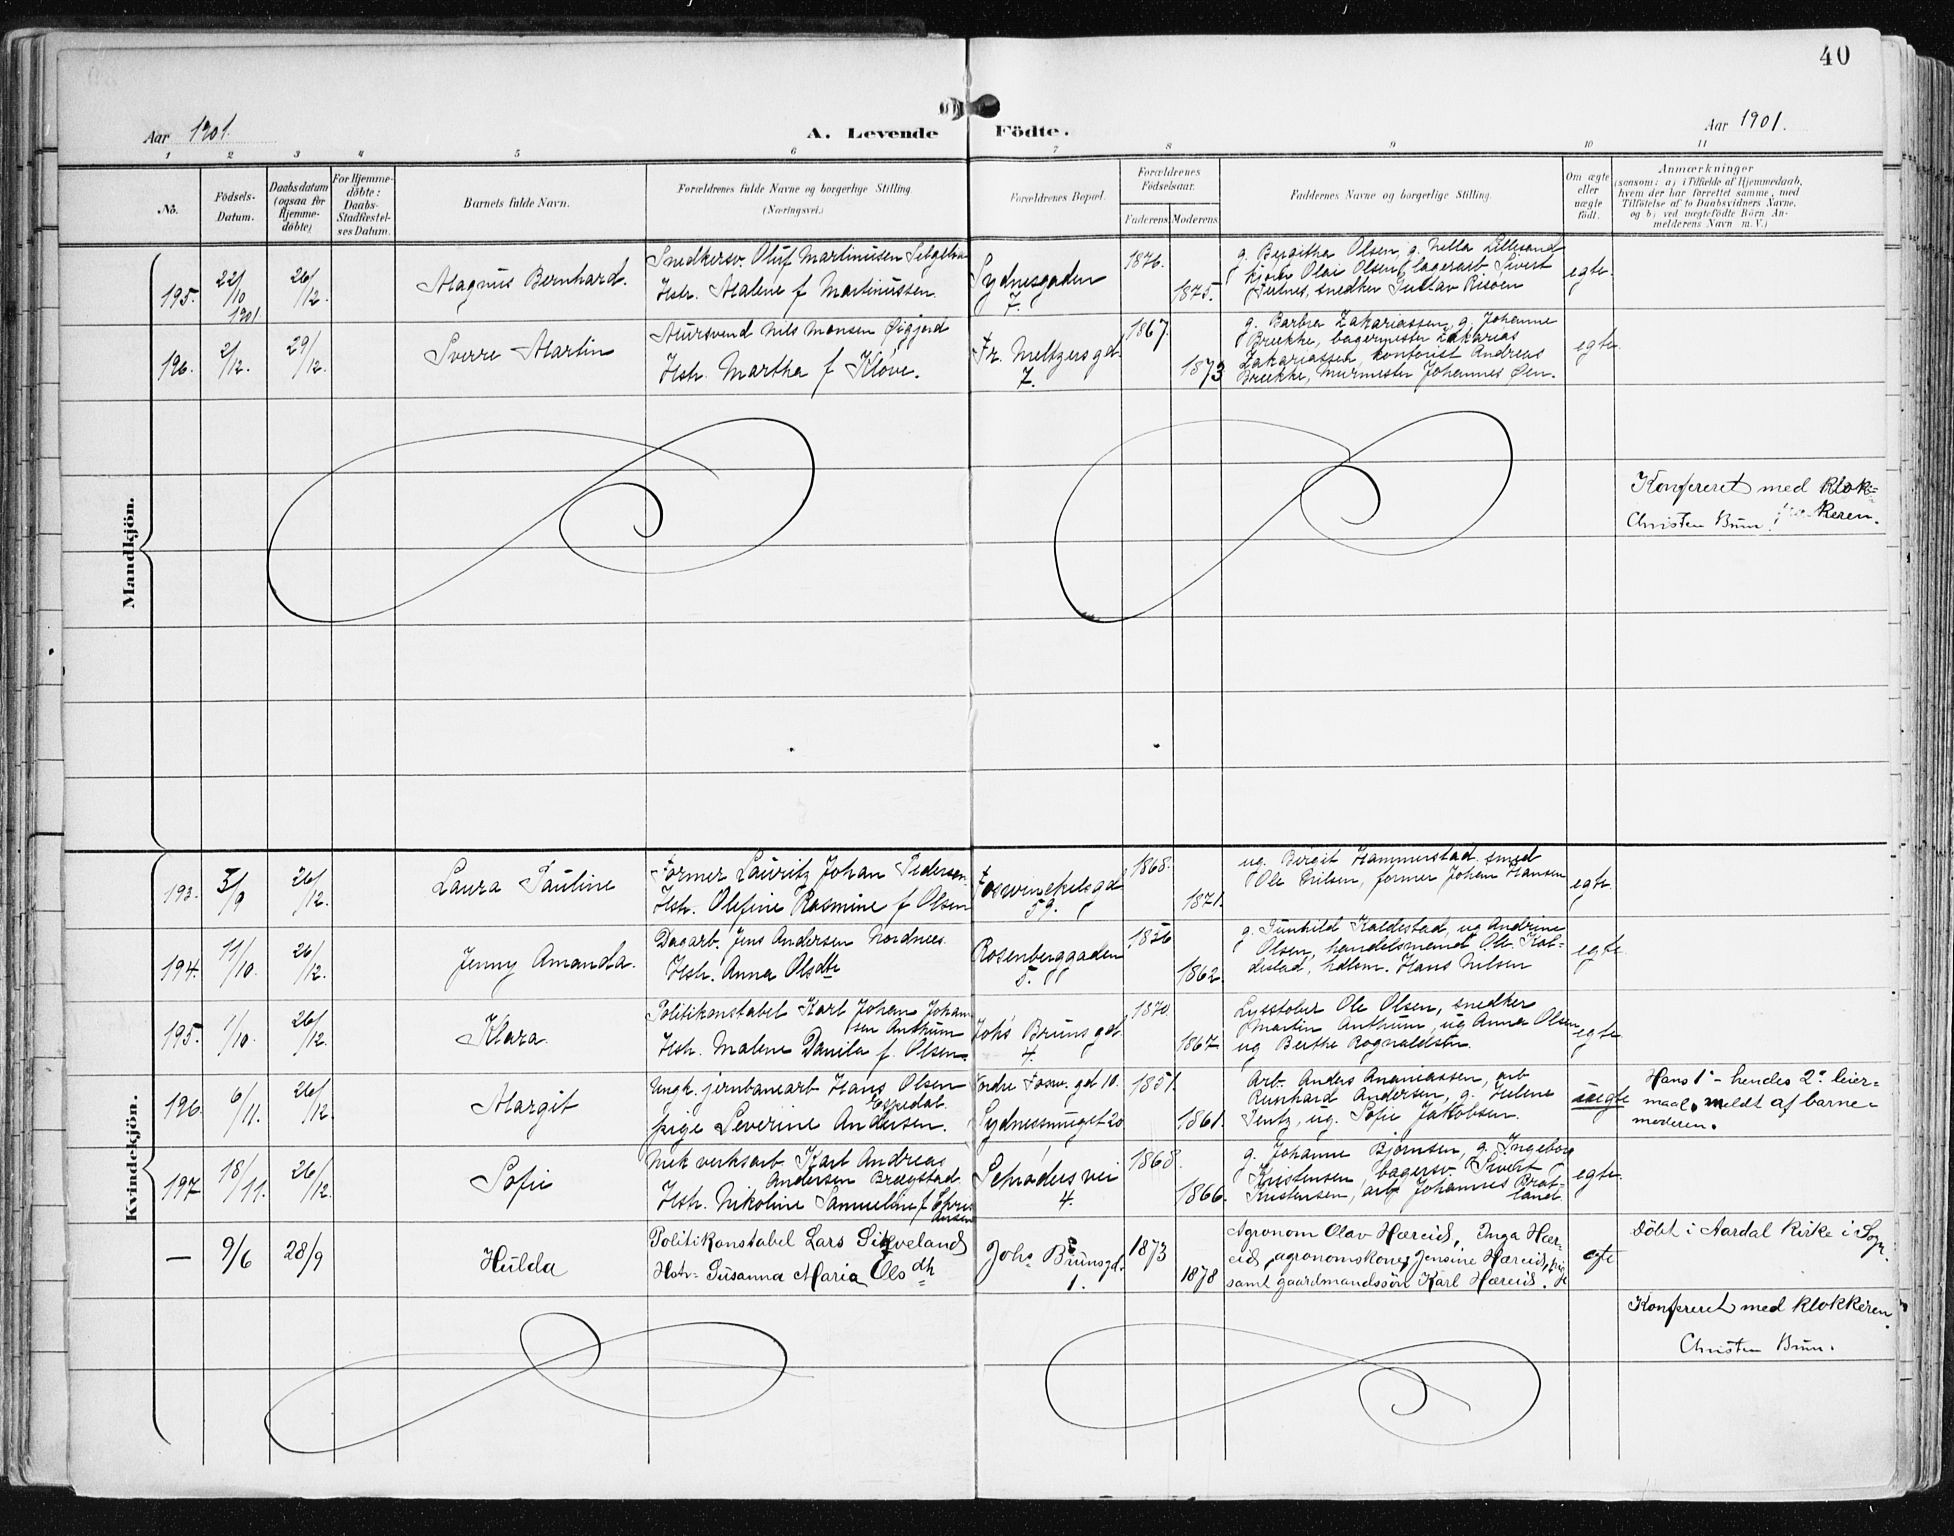 40
Aar 1901.
A. Levende Födte.
Aar 1901.
1 2 3 4 5 6 7 8 9 10 11
No.
Födsels-
Datum.
Daabsdatum
(ogsaa for
Hjemme-
döbte)
For Hjemme-
döbte:
Daabs-
Stadfæstel-
ses Datum.
Barnets fulde Navn.
Forældrenes fulde Navne og borgerlige Stilling.
(Næringsvei.)
Forældrenes Bopæl.
Forældrenes
Födselsaar.
Faderens Moderens
Faddernes Navne og borgerlige Stilling.
Om ægte
eller
uægte
födt.
Anmærkninger
(saasom: a) i Tilfælde af Hjemmedaab,
hvem der har forrettet samme, med
Tilföielse af to Daabsvidners Navne,
og b) ved uægtefödte Börn An-
melderens Navn m. V.)
Mandkjön.
195.
22/10 1901
26/12.
Magnus Bernhard.
Snedkersv. Oluf Martinusen
Hstr. Malene f Martinussen.
Sydnesgaden
7.
1876.
1875.
g. Bergitha Olsen, g. Nella Lillesand
Olai Olsen, lagerarb. Sivert
snedker Gustav Risøen
egte.
196.
2/12.
29/12.
Sverre Martin
Mursvend Nils Monsen Øigjerd
Hstr. Martha f Kløve.
Fr. Meltzersgd.
7.
1867.
1873
g. Barbra Zakariassen, g. Johanne
Brekke, bagermester Zakarias
Zakariassen, kontorist Andreas
Brekke, Murmester Johannes Øen.
egte.
Konfereret med Klok=
keren.
Christen Brun.
Kvindekjön.
193.
3/9
26/12.
Laura Pauline
Former Lauritz Johan Pedersen.
Hstr. Olefine Rasmine f Olsen
Foswinckelsgd
59.
1868.
1871.
ug. Birgit Hammerstad, smed
Ole Nilsen, former Johan Hansen
egte.
194.
11/10.
26/12.
Jenny Amanda.
Dagarb. Jens Andersen Nordnes.
Hstr. Anna Olsdtr
Rosenberggaden
5.
1856
1862.
g. Gunhild Kaldestad, ug Andrine
Olsen, handelsmand Ole Kal-
destad, hdlsm. Hans Nilsen
egte.
195.
1/10.
26/12.
Klara.
Politikonstabel Karl Johan Johan
sen Anthun
Hstr. Malene Danila f. Olsen.
Johs Brunsgd.
4.
1870
1867
Ole Olsen, snedker
Martin Anthun, ug Anna Olsen,
ug Berthe Rognaldsen.
egte.
196.
6/11.
26/12.
Margit
Ungk. jernbanearb Hans Olsen
Espedal.
pige Severine Andersen.
Nordre Fosw. gd 10.
Sydnessmuget 20
1851.
1861.
Arb. Anders Ananiassen, arb
Reinhard Andersen, g. Helene
Jentz, ug. Sofie Jakobsen.
uegte
Hans 1ste - hendes 2det leier=
maal, meldt af barne=
moderen.
197.
18/11.
26/12.
Sofie
Mek verksarb. Karl Andreas
Andersen Brægstad
Hstr. Nikoline Samueline f
Schrøders vei
4.
1868.
1866.
g. Johanne Bjørnsen, g. Ingeborg
Kristensen, bagersv. Sivert
Kristensen, arb Johannes Brat-
land
egte.
—
9/6
28/9
Hulda
Politikonstabel Lars Sikveland
Hstr. Susanna Maria Olsdtr
Johs Brunsgd.
1.
1873
1878
Agronom Olav Hæreid, Inga Hær-
eid, agronomskone, Jensine Hæreid, pige
samt gaardmandssøn Karl Hæreid.
egte
Døbt i Aardal Kirke i Sogn
Konfereret med Klokkeren.
Christen Brun.